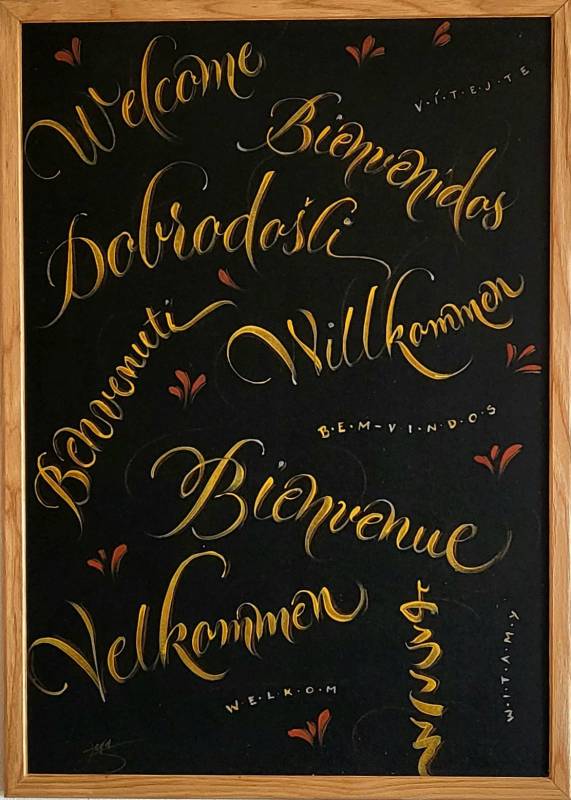 Welcome
V·Í·T·E·J·T·E
Bienvenidos
Dobrodošli
Benvenuti
Willkommen
B·E·M-V·I·N·D·O·S
Bienvenue
Velkommen
W·I·T·A·M·Y
W·E·L·K·O·M